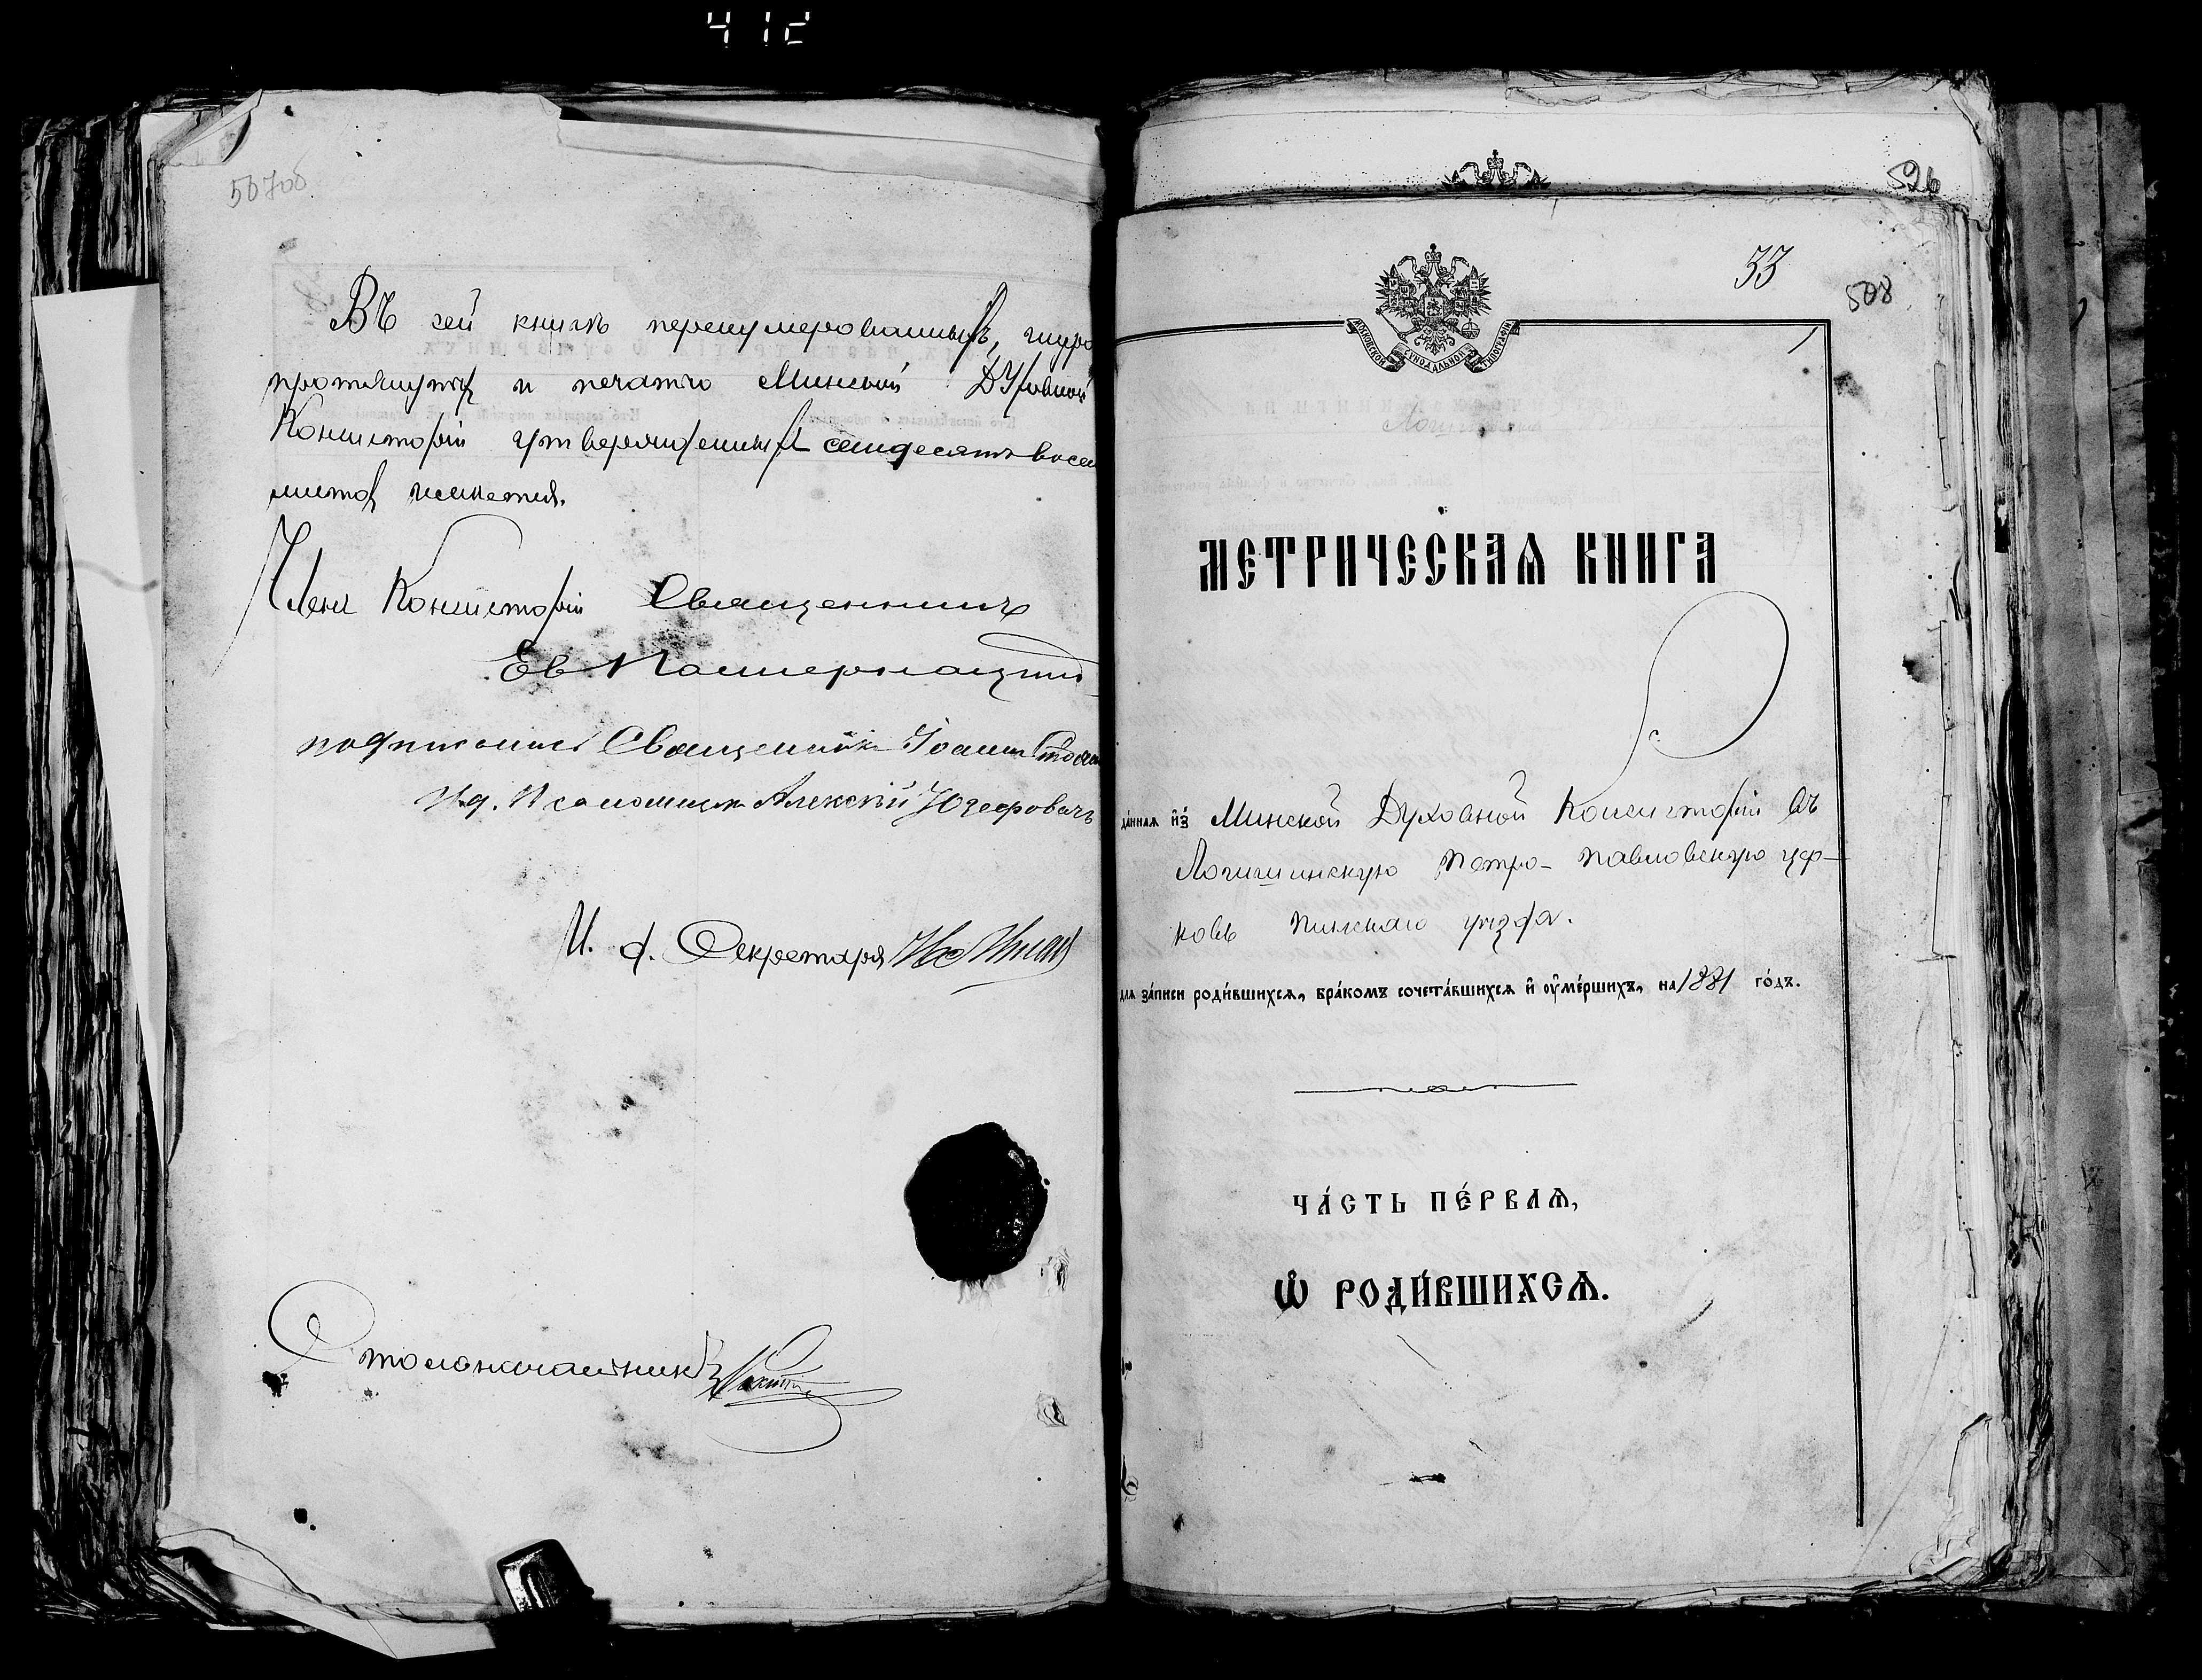 412
507об
Въ сей книгѣ перенумерованныхъ, шнуро
протянутыхъ и печатью Минской Духовной
Консисторіи утвержденныхъ семдесятъ восем
листовъ имѣется.
Членъ Консисторіи Священникъ
Ев. Пастернацкій
подписали: Священникъ Іоаннъ
И. д. Псаломщика Алексѣй Юзефовичъ
И. д. Секретаря
Столоначальникъ
526
33
508
1
МОСКОВСКОЙ СѴНОДАЛЬНОЙ ТИПОГРАФІИ
МЕТРИЧЕСКАѦ КНИГА
да́ннаѧ и҆з̾ Минской Духовной Консисторіи въ
Логишинскую Петро-Павловскую цер-
ковь Пинскаго уѣзда.
длѧ за́писи роди́вшихсѧ, бра́комъ сочета́вшихсѧ и҆ ᲂу҆ме́ршихъ, на 1881 го́дъ.
ЧА́СТЬ ПЕ́РВАѦ,
Ѽ РОДИ́ВШИХСѦ.